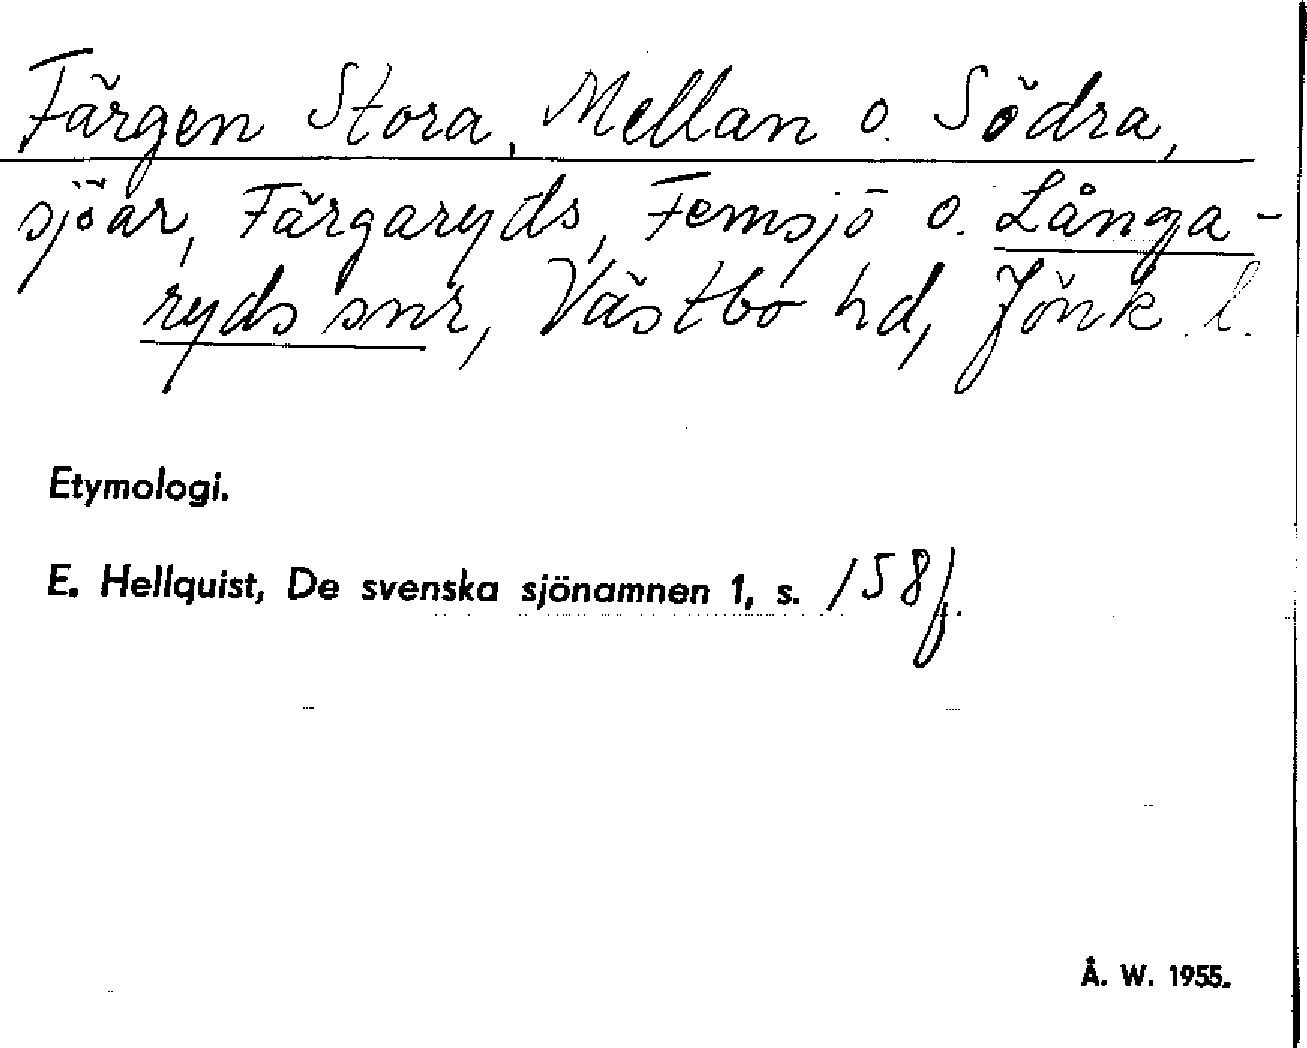 Färgen Stora, Mellan o. Södra,
sjöar, Färgaryds, Femsjö o. Långa-
ryds snr, Västbo hd, Jönk. l.
Etymologi.
E. Hellquist, De svenska sjönamnen 1, s. 158f.
Å. W. 1955.